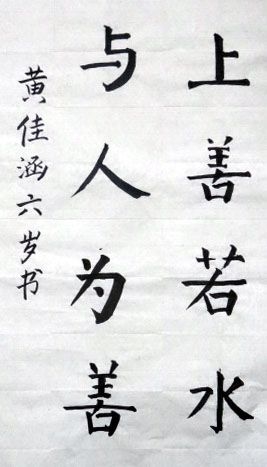 上善若水
与人为善
黄佳涵六岁书